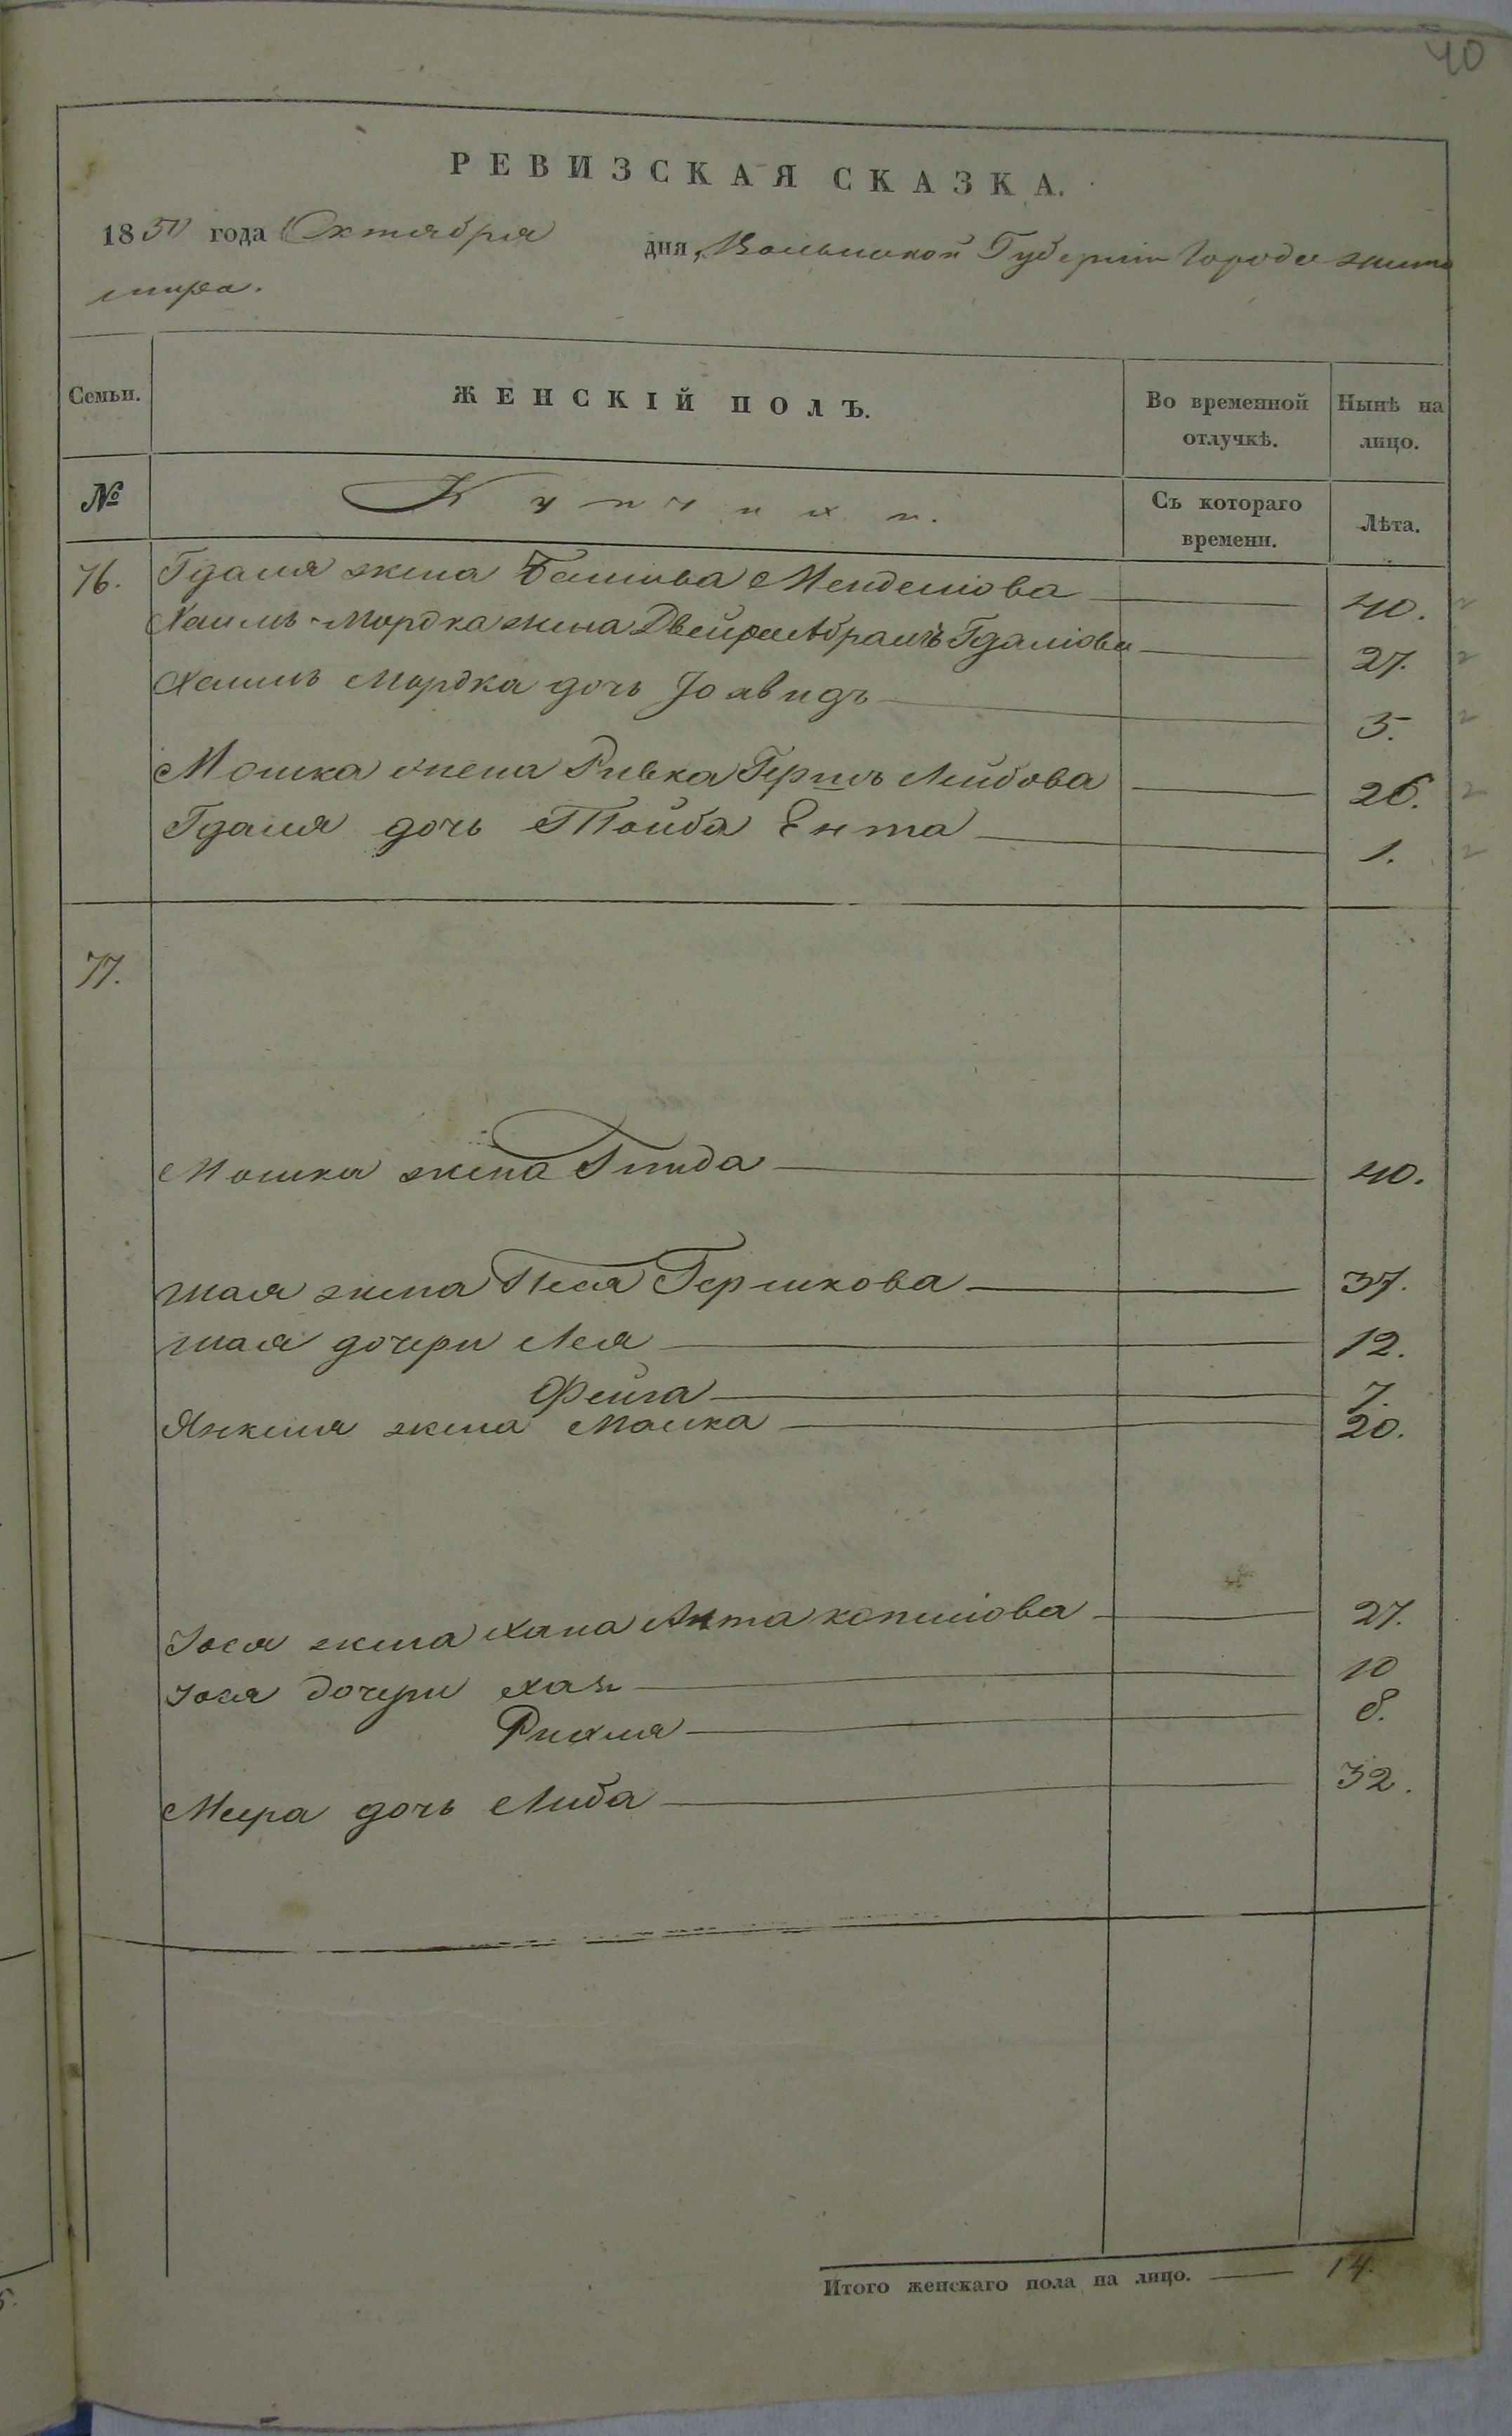 40
РЕВИЗСКАЯ СКАЗКА.
1850 года Октября дня, Волынской Губерніи Города Жито
мира.
Семьи. ЖЕНСКІЙ ПОЛЪ. Во временной отлучкѣ. Нынѣ на лицо.
№ Купчихи. Съ котораго времени. Лѣта.
76. Гдаля жена Башива Менделіова 40.
Хаимъ-Мордка жена Двейра Абрамъ Гдаліова 27.
Хаимъ Мордка дочь 5.
Мошка жена Ривка Гершъ Лейбова 26.
Гдаля дочь Тойба Ента 1.
77.
Мошка жена 40.
Шая жена Песя Гершкова 37.
Шая дочери Лея 12.
Фейга 7.
Янкеля жена Малка 20.
Іося жена Хана 27.
Іося дочери Хая 10
Рихля 8.
Меера дочь Либа 32.
Итого женскаго пола на лицо. 14.